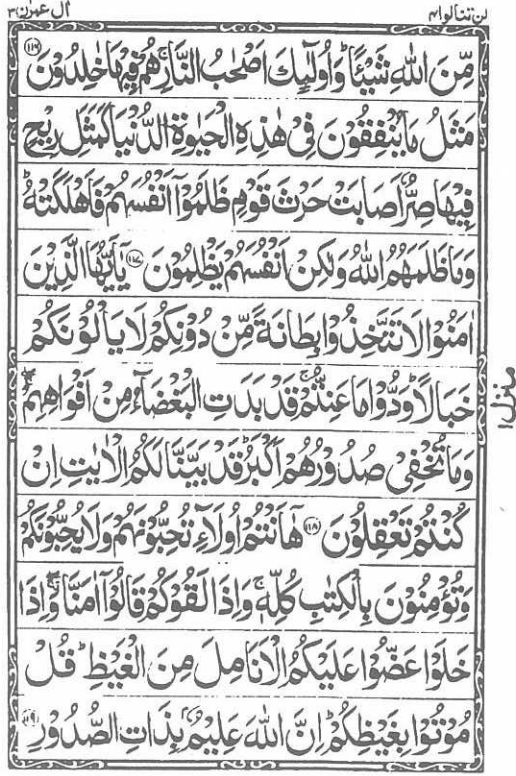 لن تنالوا ۴ ال عمرٰن ۳
مِّنَ اللّٰهِ شَيْـًٔا ؕ وَاُولٰٓئِكَ اَصْحٰبُ النَّارِ ۚ هُمْ فِيْهَا خٰلِدُوْنَ ۝۱۱۶
مَثَلُ مَا يُنْفِقُوْنَ فِىْ هٰذِهِ الْحَيٰوةِ الدُّنْيَا كَمَثَلِ رِيْحٍ
فِيْهَا صِرٌّ اَصَابَتْ حَرْثَ قَوْمٍ ظَلَمُوْۤا اَنْفُسَهُمْ فَاَهْلَكَتْهُ ؕ
وَمَا ظَلَمَهُمُ اللّٰهُ وَلٰكِنْ اَنْفُسَهُمْ يَظْلِمُوْنَ ۝۱۱۷ يٰۤاَيُّهَا الَّذِيْنَ
اٰمَنُوْا لَا تَتَّخِذُوْا بِطَانَةً مِّنْ دُوْنِكُمْ لَا يَاْلُوْنَكُمْ
خَبَالًا ؕ وَدُّوْا مَا عَنِتُّمْ ۚ قَدْ بَدَتِ الْبَغْضَآءُ مِنْ اَفْوَاهِهِمْ ۖۚ
وَمَا تُخْفِىْ صُدُوْرُهُمْ اَكْبَرُ ؕ قَدْ بَيَّنَّا لَكُمُ الْاٰيٰتِ اِنْ
كُنْتُمْ تَعْقِلُوْنَ ۝۱۱۸ هٰۤاَنْتُمْ اُولَآءِ تُحِبُّوْنَهُمْ وَلَا يُحِبُّوْنَكُمْ
وَتُؤْمِنُوْنَ بِالْكِتٰبِ كُلِّهٖ ۚ وَاِذَا لَقُوْكُمْ قَالُوْۤا اٰمَنَّا ۖۚ وَاِذَا
خَلَوْا عَضُّوْا عَلَيْكُمُ الْاَنَامِلَ مِنَ الْغَيْظِ ؕ قُلْ
مُوْتُوْا بِغَيْظِكُمْ ؕ اِنَّ اللّٰهَ عَلِيْمٌۢ بِذَاتِ الصُّدُوْرِ ۝۱۱۹
منزل ۱